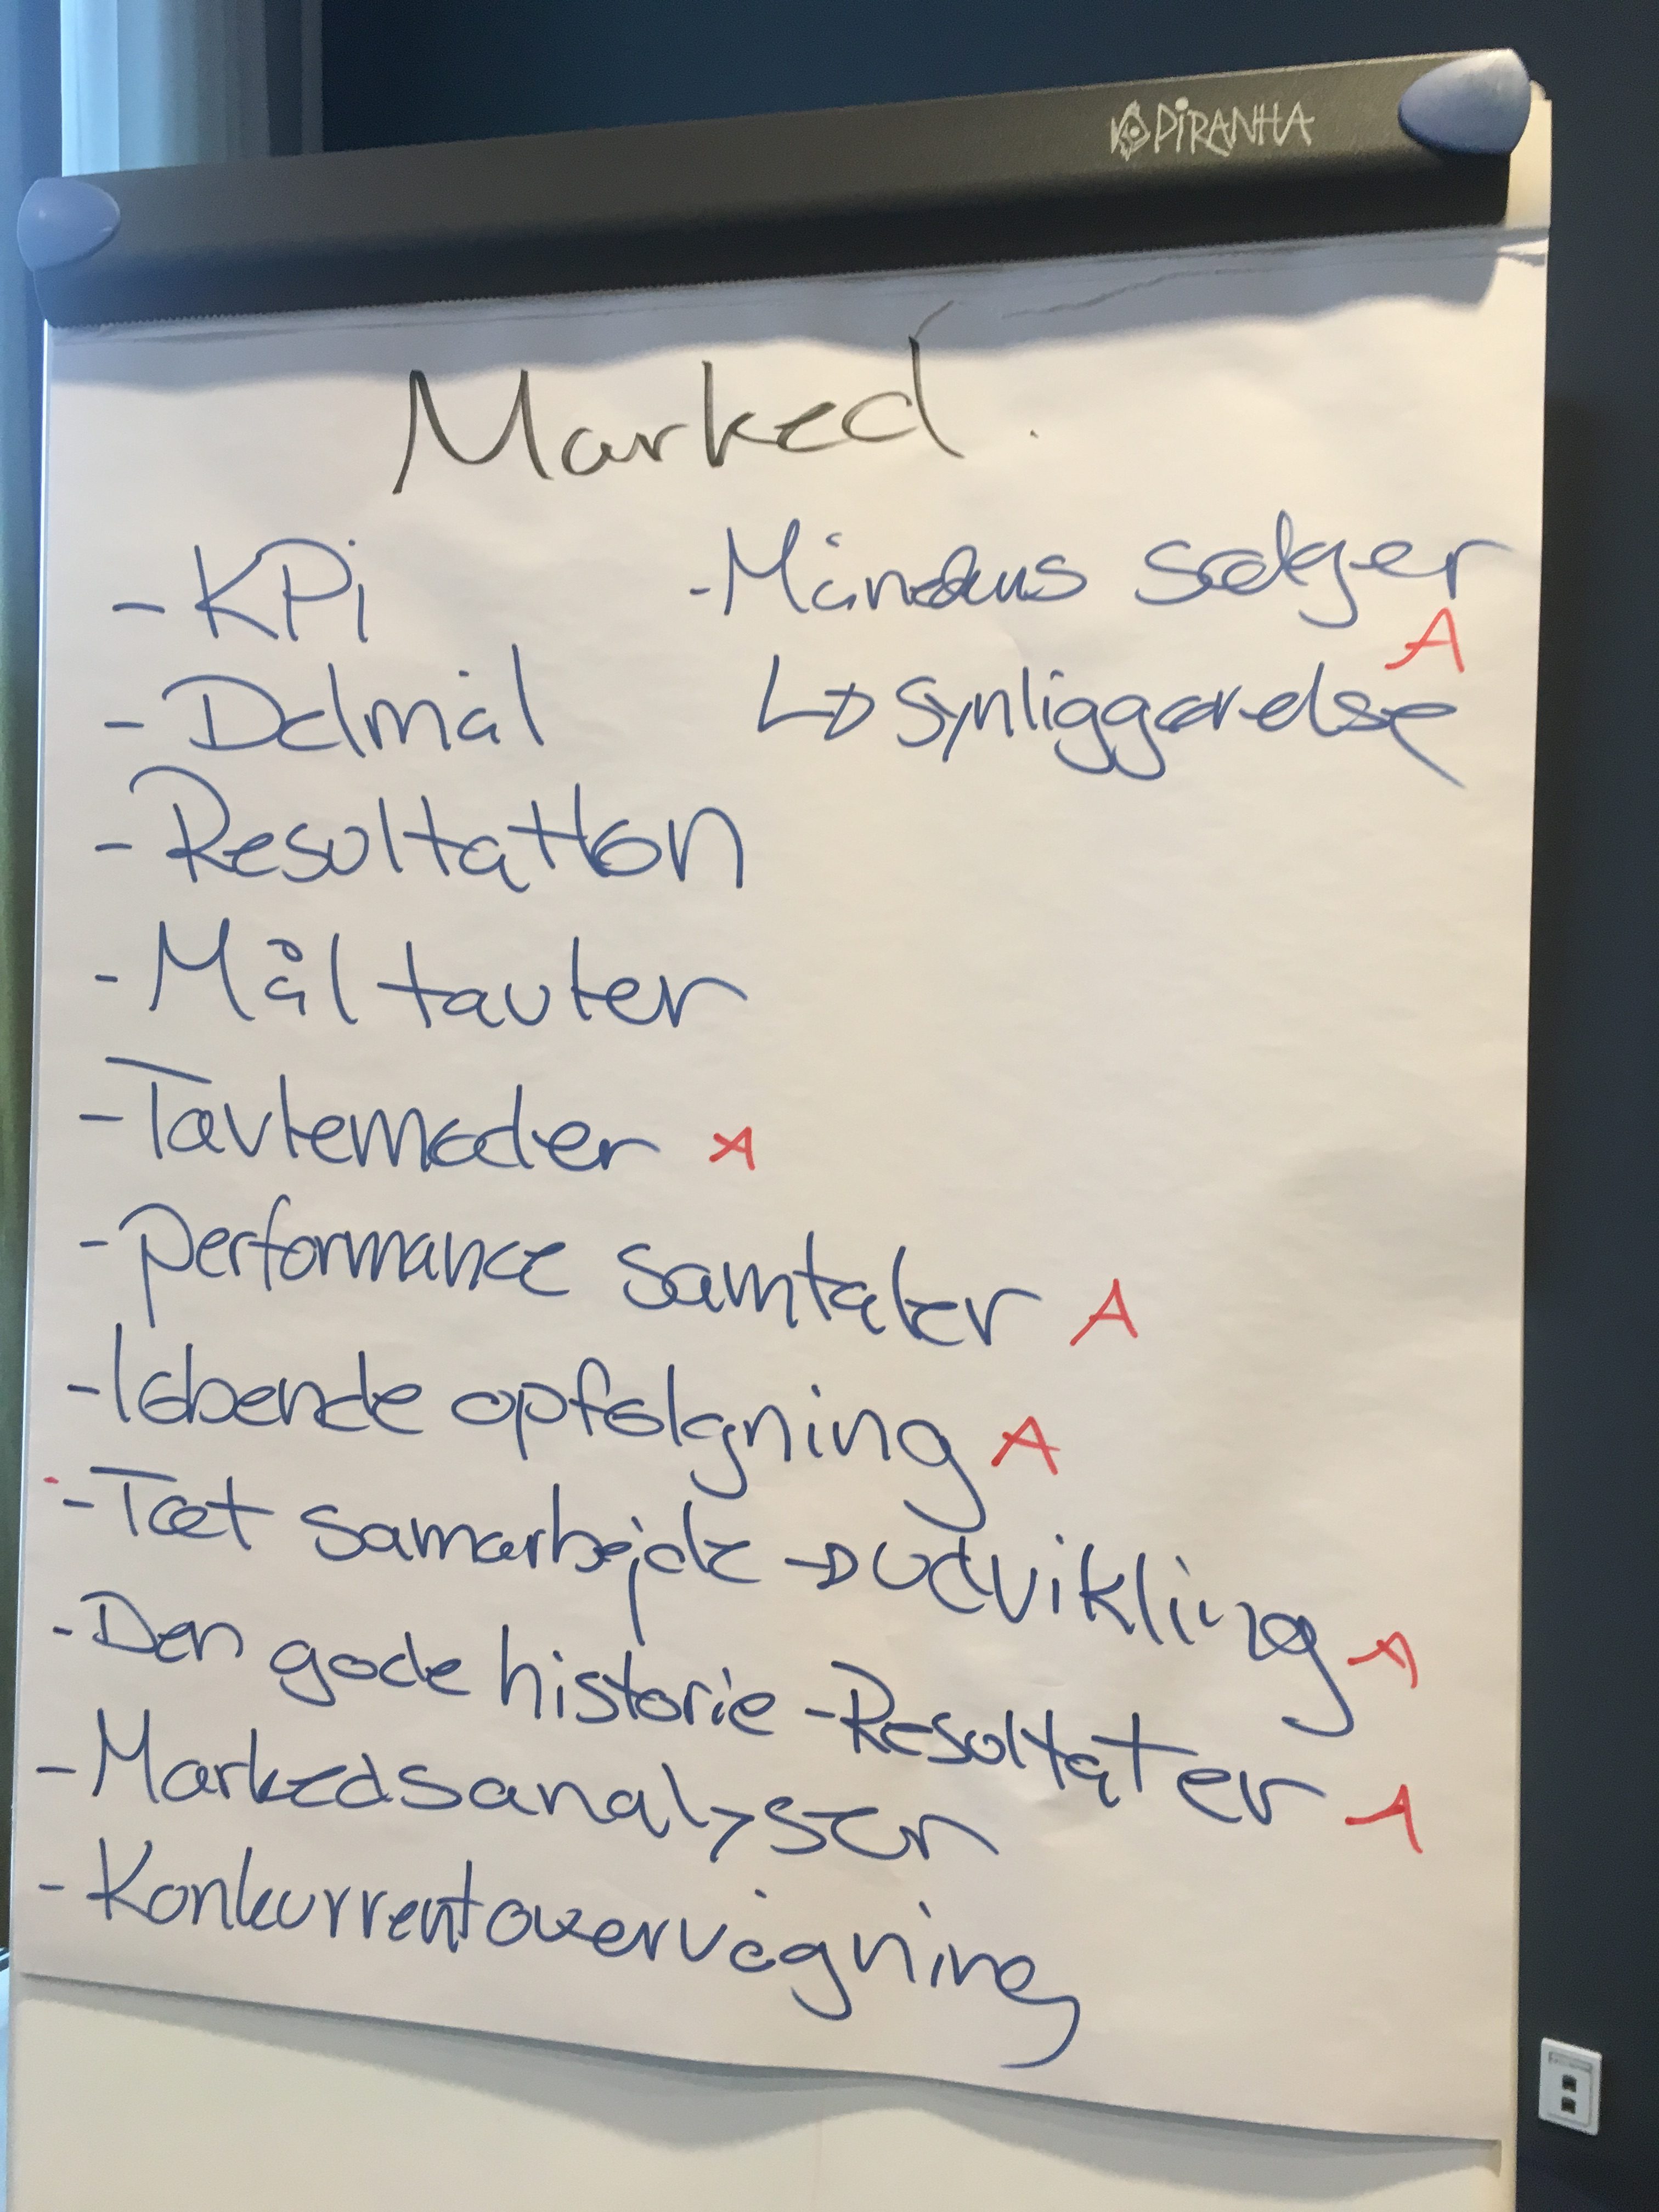 PiRANHA
Marked.
- KPi
- Delmål
- Resultatløn
- Mål tavler
- Tavlemøder A
- performance samtaler A
- løbende opfølgning A
- Tæt samarbejde → udvikling A
- Den gode historie - Resultater A
- Markedsanalyser
- Konkurrentovervågning
- Månedens sælger A
↳ synliggørelse